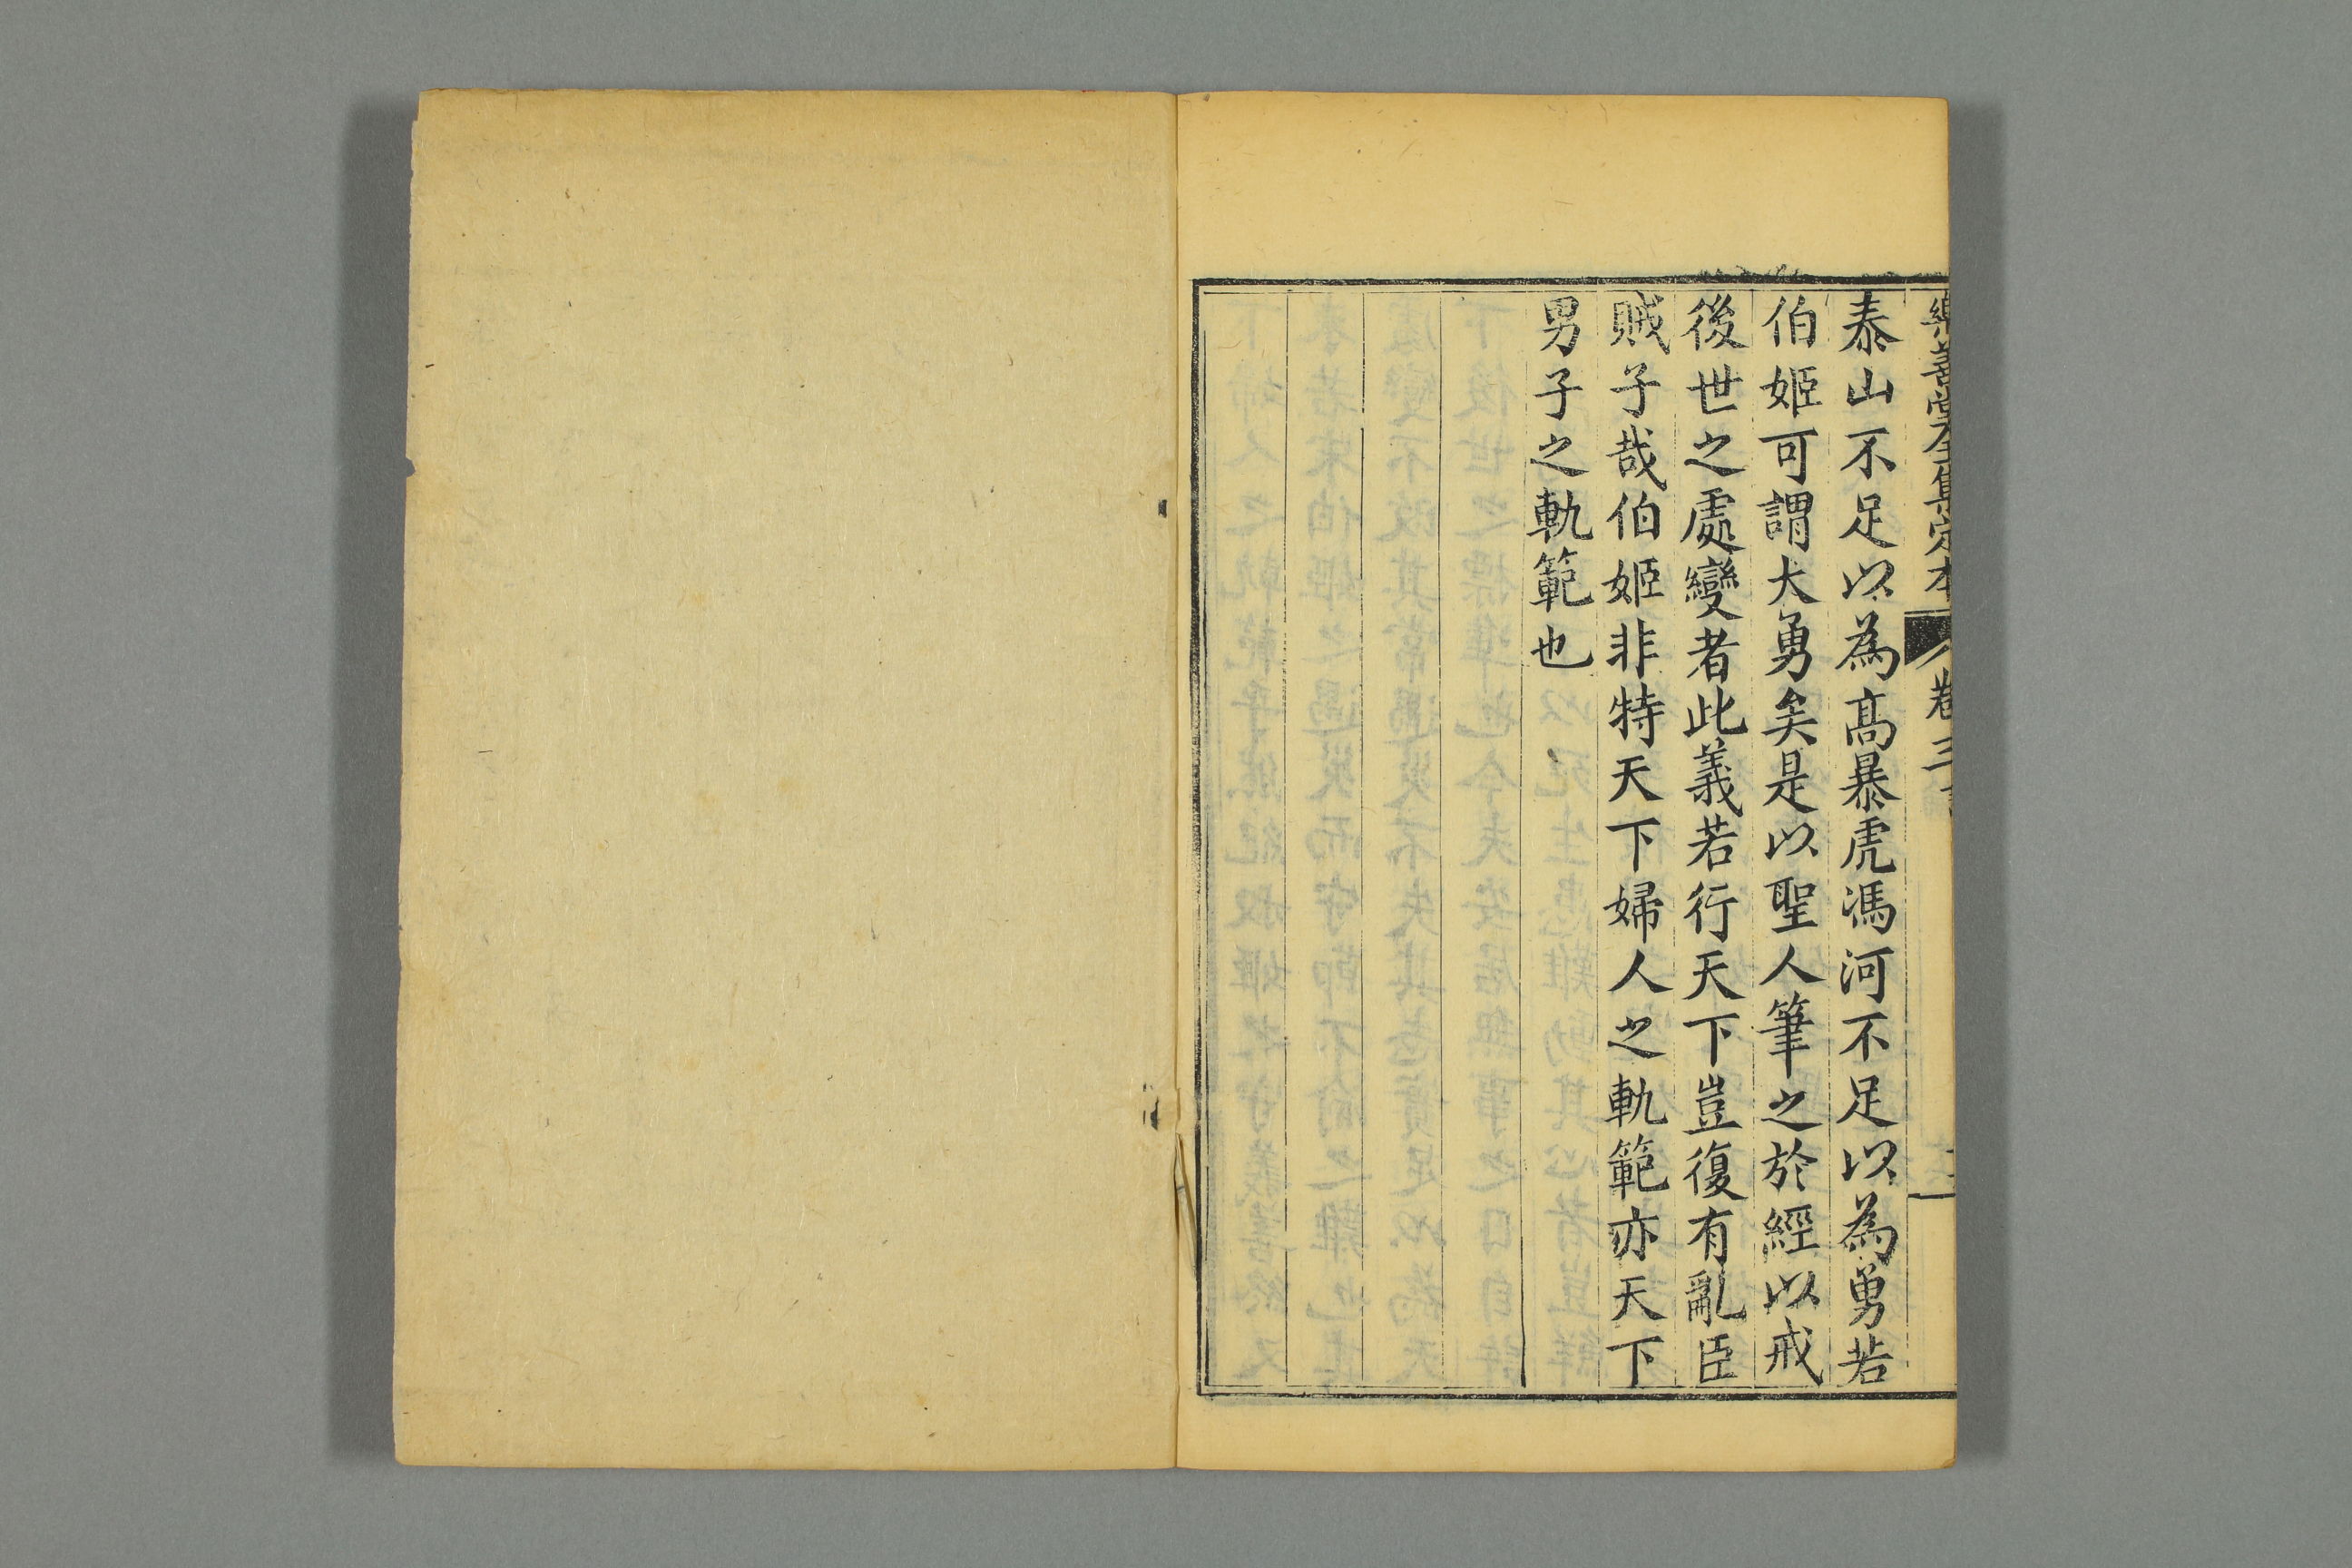 樂善堂全集定本
卷三
泰山不足以為髙暴虎馮河不足以為勇若
伯姬可謂大勇矣是以聖人筆之於經以戒
後世之處變者此義若行天下豈復有亂臣
賊子哉伯姬非特天下婦人之軌範亦天下
男子之軌範也